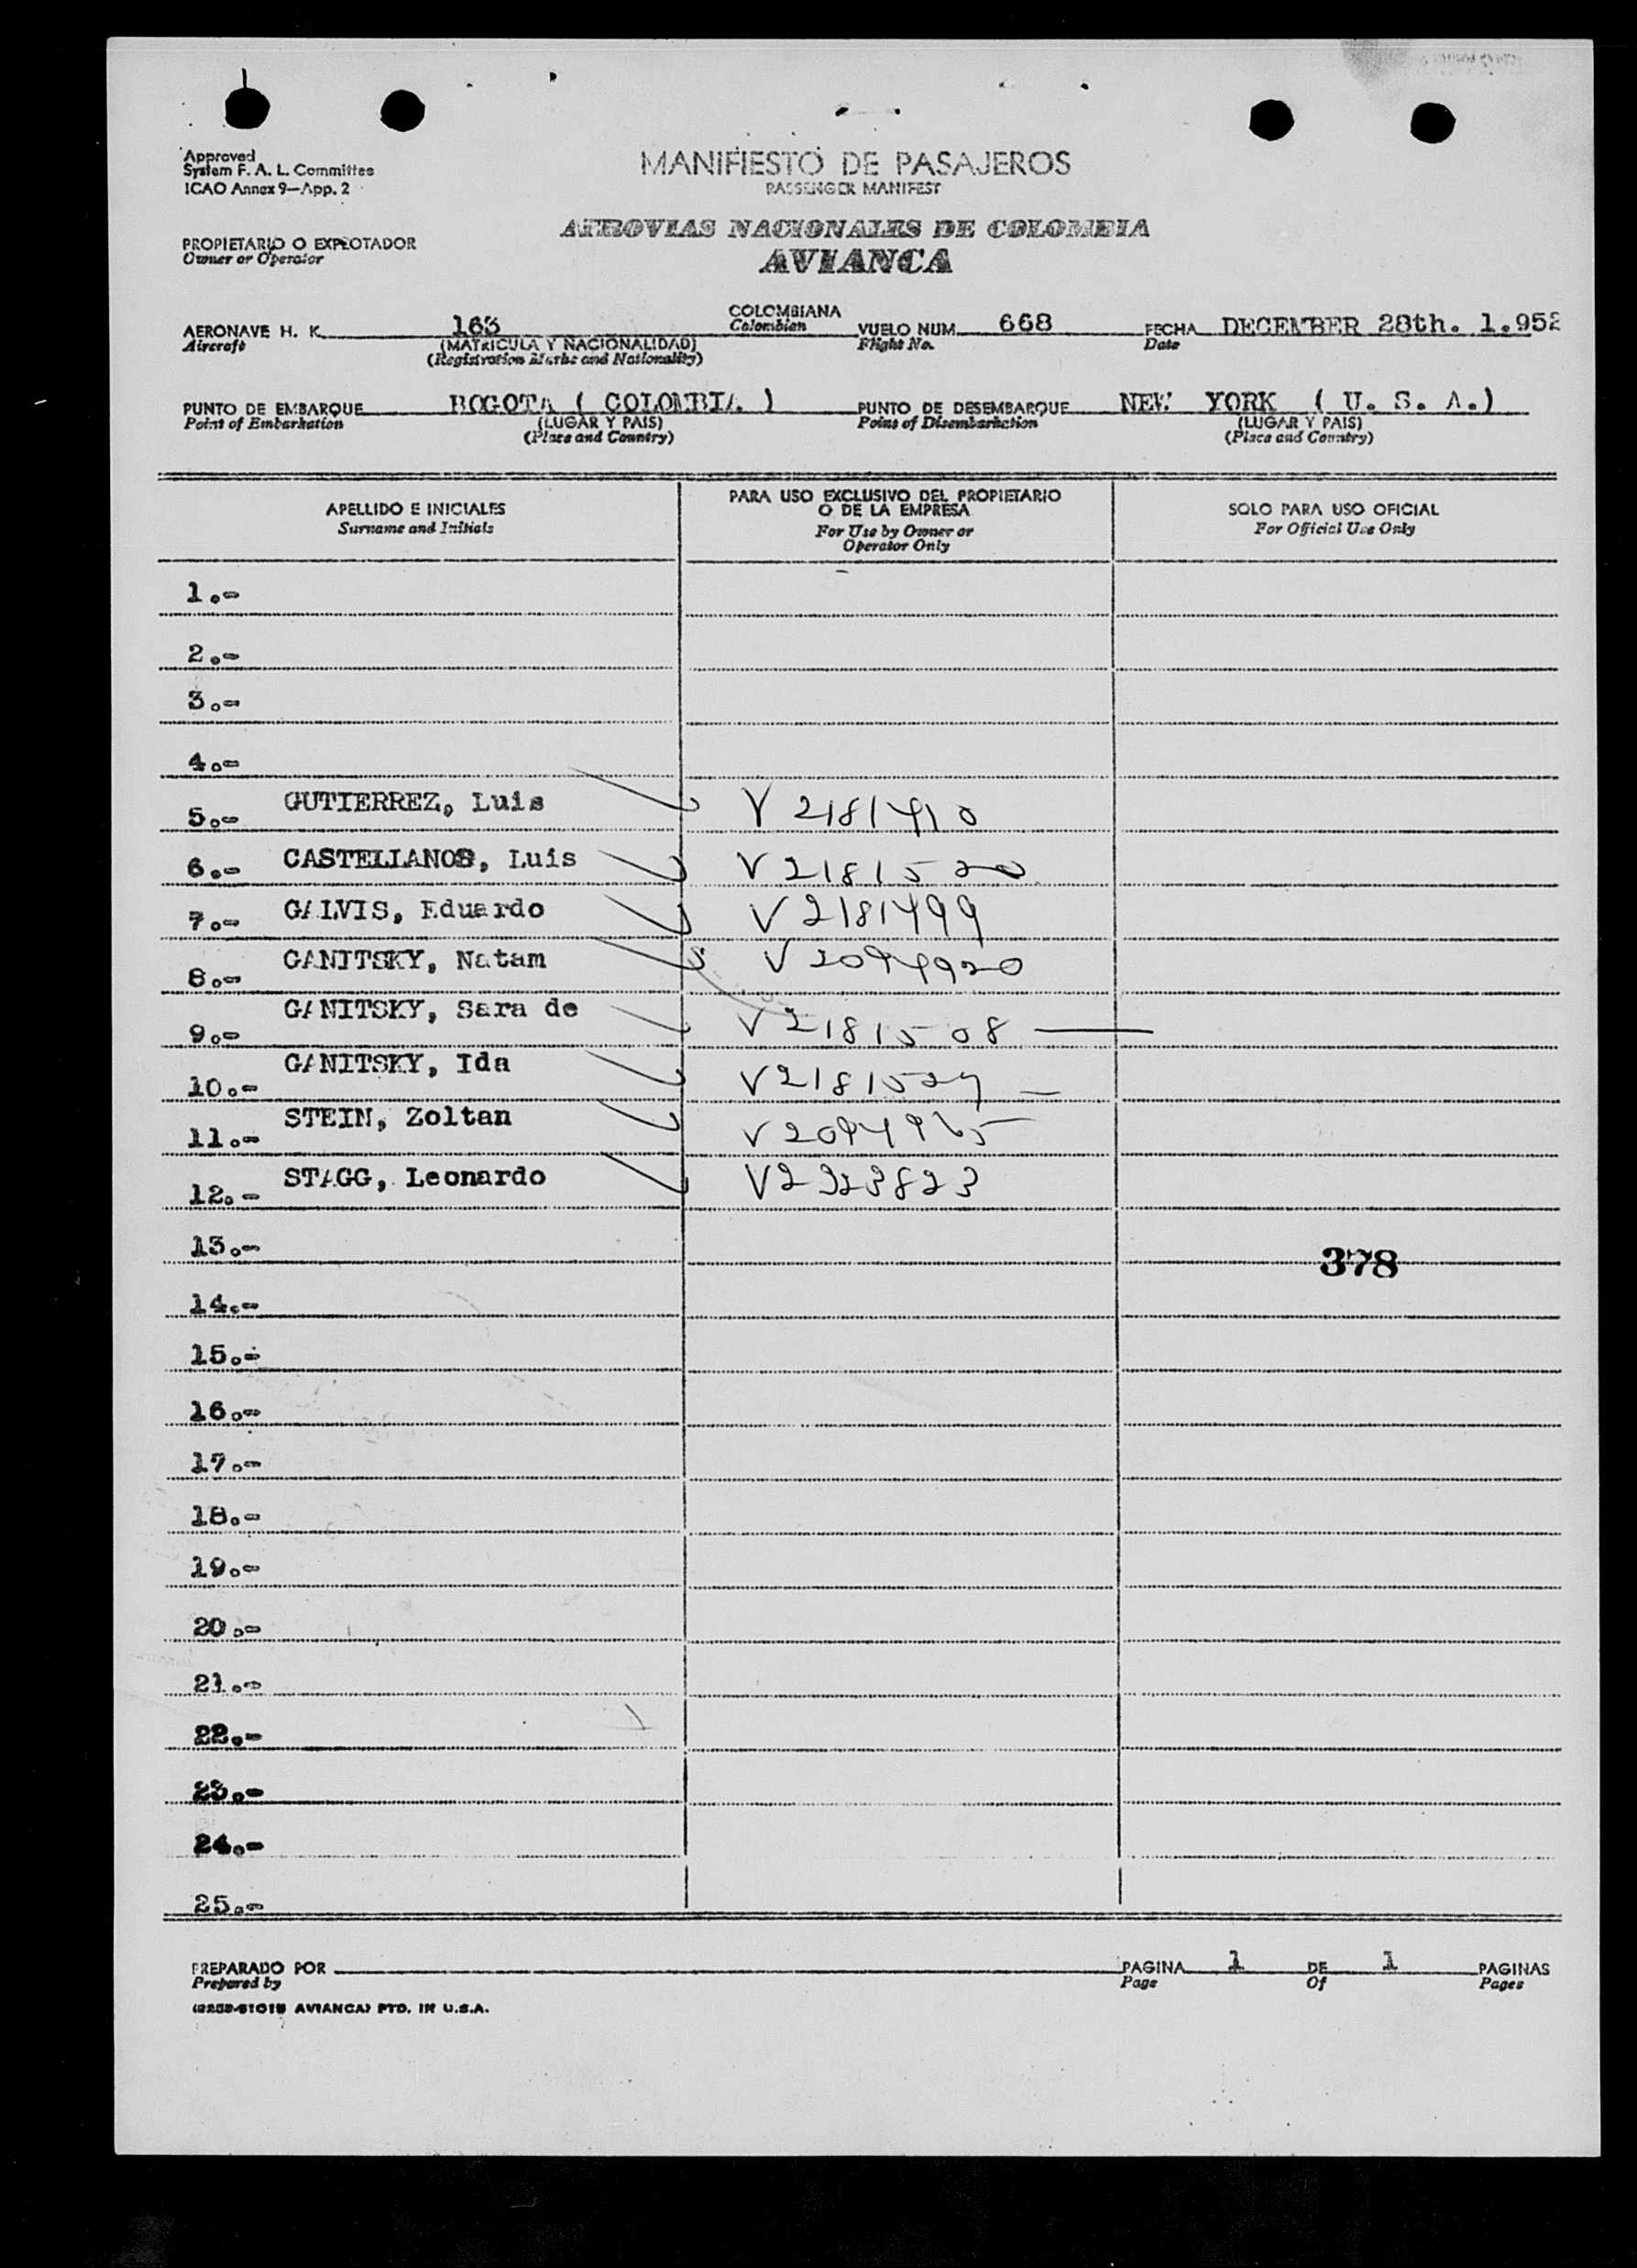 Approved
System F. A. L. Committee
ICAO Annex 9—App. 2
MANIFIESTO DE PASAJEROS
PASSENGER MANIFEST
AEROVIAS NACIONALES DE COLOMBIA
AVIANCA
PROPIETARIO O EXPLOTADOR
Owner or Operator
AERONAVE H. K. 163 COLOMBIANA VUELO NUM. 668 FECHA DECEMBER 28th. 1.952
Aircraft (MATRICULA Y NACIONALIDAD) Colombian Flight No. Date
(Registration Marks and Nationality)
PUNTO DE EMBARQUE BOGOTA ( COLOMBIA ) PUNTO DE DESEMBARQUE NEW YORK ( U. S. A.)
Point of Embarkation (LUGAR Y PAIS) Point of Disembarkation (LUGAR Y PAIS)
(Place and Country) (Place and Country)
APELLIDO E INICIALES
Surname and Initials
PARA USO EXCLUSIVO DEL PROPIETARIO
O DE LA EMPRESA
For Use by Owner or
Operator Only
SOLO PARA USO OFICIAL
For Official Use Only
1.-
2.-
3.-
4.-
5.- GUTIERREZ, Luis V 2181410
6.- CASTELLANOS, Luis V 2181520
7.- GALVIS, Eduardo V 2181499
8.- GANITSKY, Natam V 2094920
9.- GANITSKY, Sara de V 2181508
10.- GANITSKY, Ida
11.- STEIN, Zoltan
12.- STAGG, Leonardo V2223823
13.- 378
14.-
15.-
16.-
17.-
18.-
19.-
20.-
21.-
22.-
23.-
24.-
25.-
PREPARADO POR PAGINA 1 DE 1 PAGINAS
Prepared by Page Of Pages
AVIANCA) PTD. IN U.S.A.